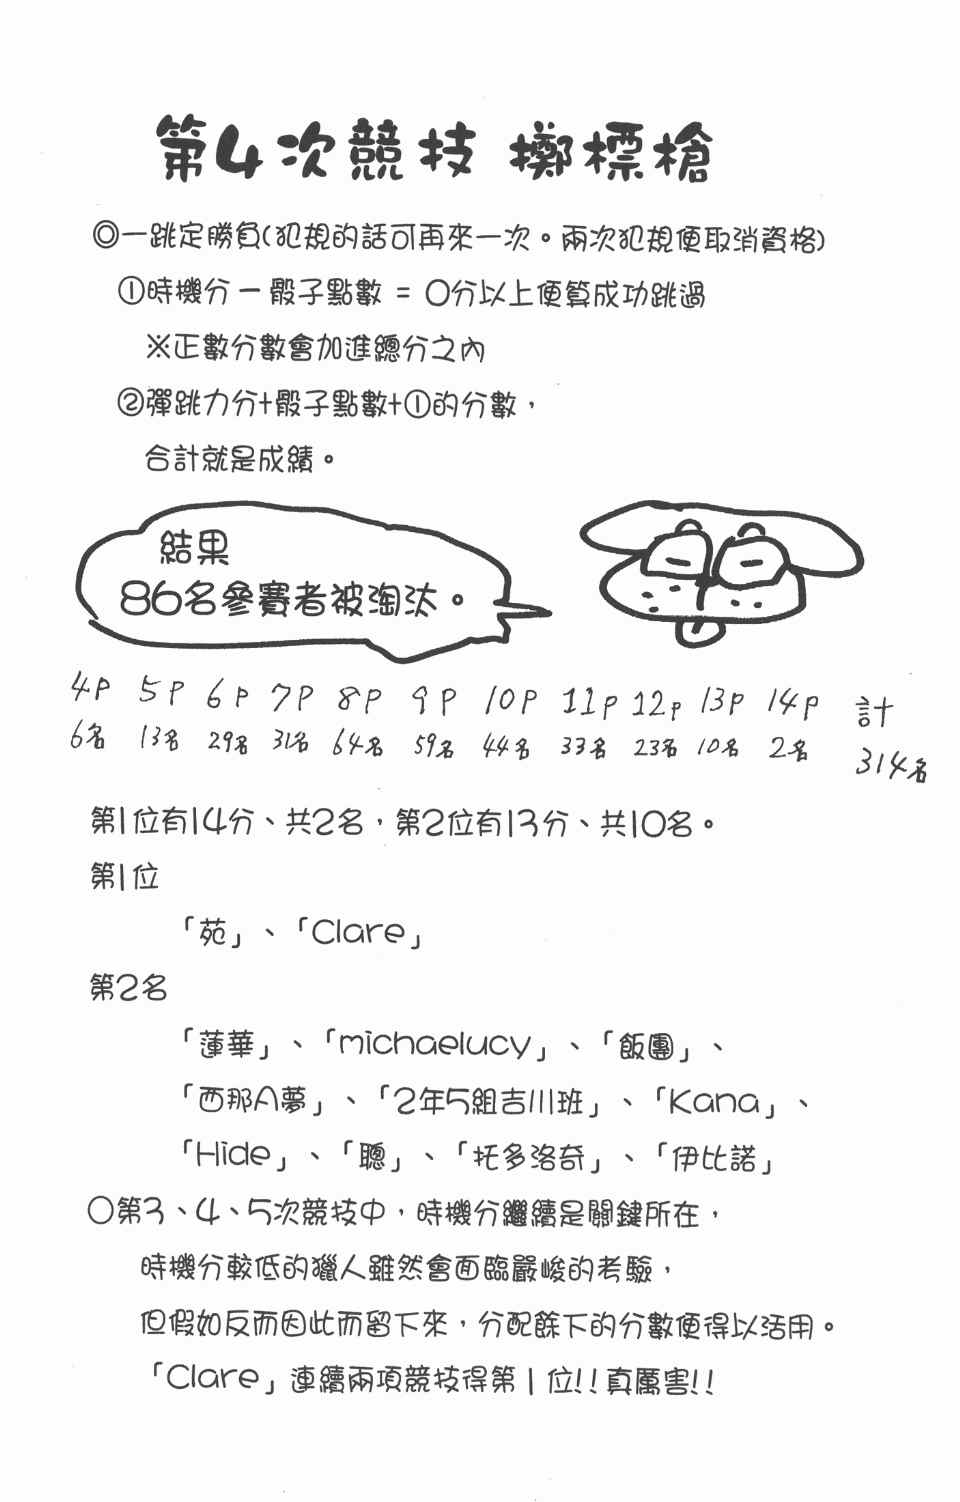 第4次競技 擲標槍
◎一跳定勝負(犯規的話可再來一次。兩次犯規便取消資格)
①時機分－骰子點數 = 0分以上便算成功跳過
※正數分數會加進總分之內
②彈跳力分+骰子點數+①的分數，
合計就是成績。
結果
86名參賽者被淘汰。
4P 5P 6P 7P 8P 9P 10P 11P 12P 13P 14P 計
6名 13名 29名 31名 64名 59名 44名 33名 23名 10名 2名 314名
第1位有14分、共2名，第2位有13分、共10名。
第1位
「苑」、「Clare」
第2名
「蓮華」、「michaelucy」、「飯團」、
「西那A夢」、「2年5組吉川班」、「Kana」、
「Hide」、「聰」、「托多洛奇」、「伊比諾」
○第3、4、5次競技中，時機分繼續是關鍵所在，
時機分較低的獵人雖然會面臨嚴峻的考驗，
但假如反而因此而留下來，分配餘下的分數便得以活用。
「Clare」連續兩項競技得第1位!!真厲害!!